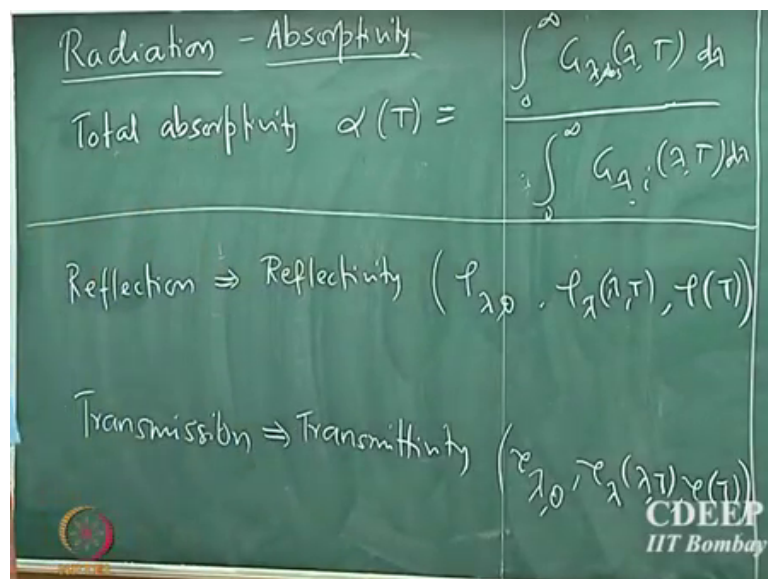 Radiation - Absorptivity
Total absorptivity α(T) = ∫₀^∞ G_λ,abs(λ, T) dλ / ∫₀^∞ G_λ,i(λ, T) dλ
Reflection ⇒ Reflectivity (ρ_λ,θ, ρ_λ(λ,T), ρ(T))
Transmission ⇒ Transmittivity (τ_λ,θ, τ_λ(λ,T), τ(T))
CDEEP
IIT Bombay